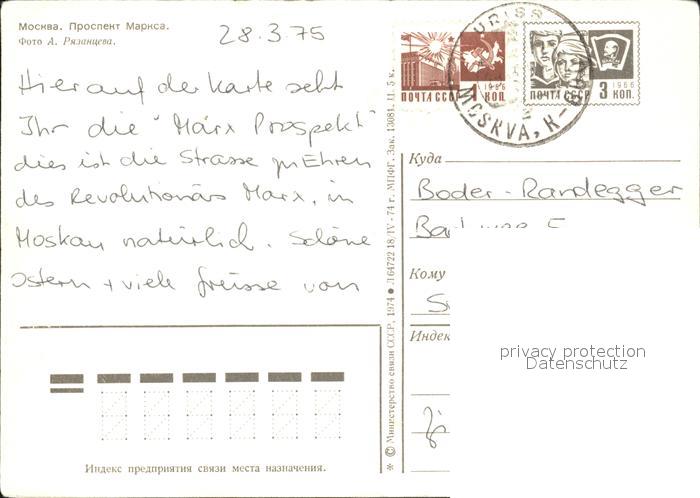 Москва. Проспект Маркса.
Фото А. Рязанцева.
28.3.75
Hier auf der Karte seht
Ihr die "Marx Prospekt"
dies ist die Strasse zu Ehren
des Revolutionärs Marx, in
Moskau natürlich. Schöne
Ostern + viele Grüsse von
Индекс предприятия связи места назначения.
* © Министерство связи СССР, 1974 ● Л 64722 18/IV - 74 г. МПФГ. Зак. 13081. Ц. 5 к.
ПОЧТА СССР
1966
КОП.
MOSKVA,
ПОЧТА СССР
3
1966
КОП.
Куда
Boder-Randegger
Кому
Индекс
privacy protection
Datenschutz